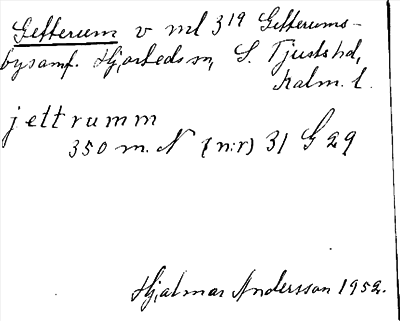 Getterum v ml 3¹⁹ Getterums-
bysamf. Hjorteds sn, S. Tjusts hd,
Kalm. l.
jettrumm
350 m. N (n:r) 31 G 29
Hjalmar Andersson 1952.